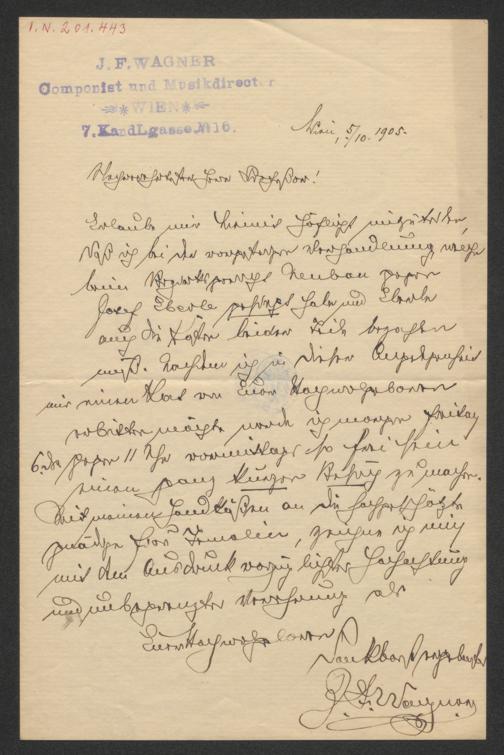 I.N. 201.443
J. F. WAGNER
Componist und Musikdirector
WIEN
7, Kandlgasse, № 16.
Wien, 5/10. 1905.
Hochverehrter Herr Professor!
Erlaube mir hiemit höflichst mitzuteilen,
daß ich bei der vorgestrigen Verhandlung, welche
beim Bezirksgericht Neubau gegen
Josef Eberle gesiegt habe und Eberle
auch die Kosten beider Teile bezahlen
muß. Nachdem ich in dieser Angelegenheit
mir einen Rat von Euer Hochwohlgeboren
erbitten möchte werde ich morgen Freitag
6. des gegen 11 Uhr vormittags so frei sein
einen ganz kurzen Besuch zu machen.
Mit meinen Handküßen an die hochgeschätzte
gnädige Frau Gemalin, zeichne ich mich
mit dem Ausdruck vorzüglichster Hochachtung
und unbegrenzter Verehrung als
Euer Hochwohlgeboren
Dankbarst ergebenster
J. F. Wagner